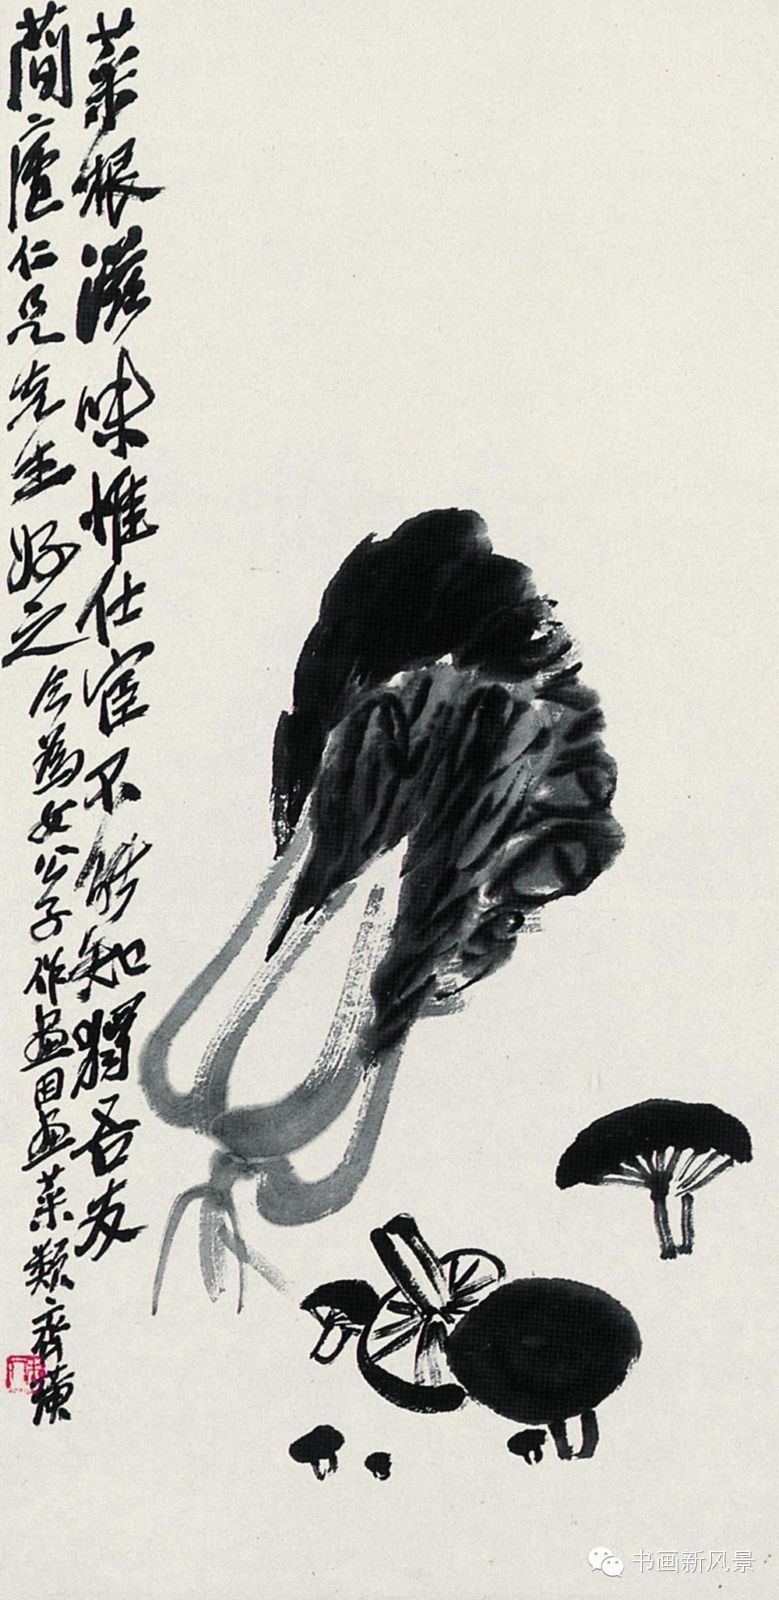 菜根滋味惟仕宦不能知独吾友
蕳廬仁兄先生好之今為女公子作画因画菜類齐璜
书画新风景